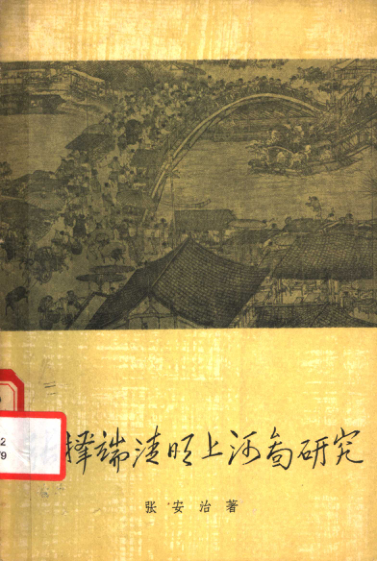 择端清明上河图研究
张安治著